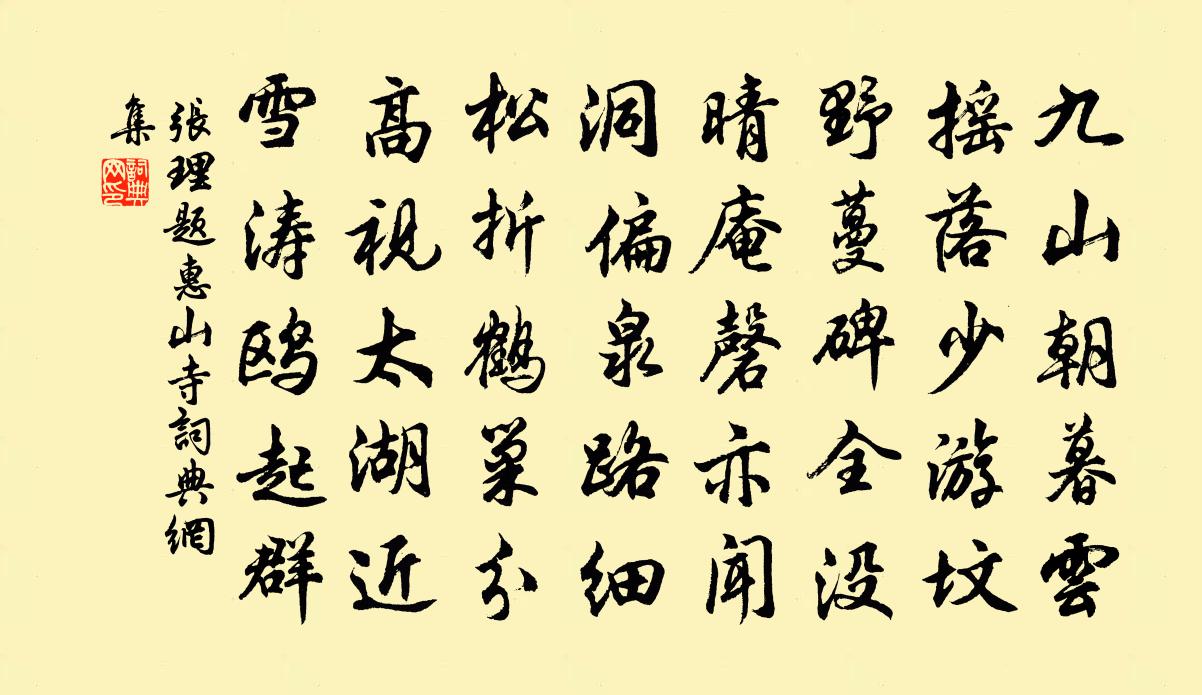 九山朝暮雲
摇落少游坟
野蔓碑全没
晴庵磬亦闻
洞偏泉路细
松折鹤巢分
高視太湖近
雪涛鸥起群
張理题惠山寺詞典網
集
詞典網印